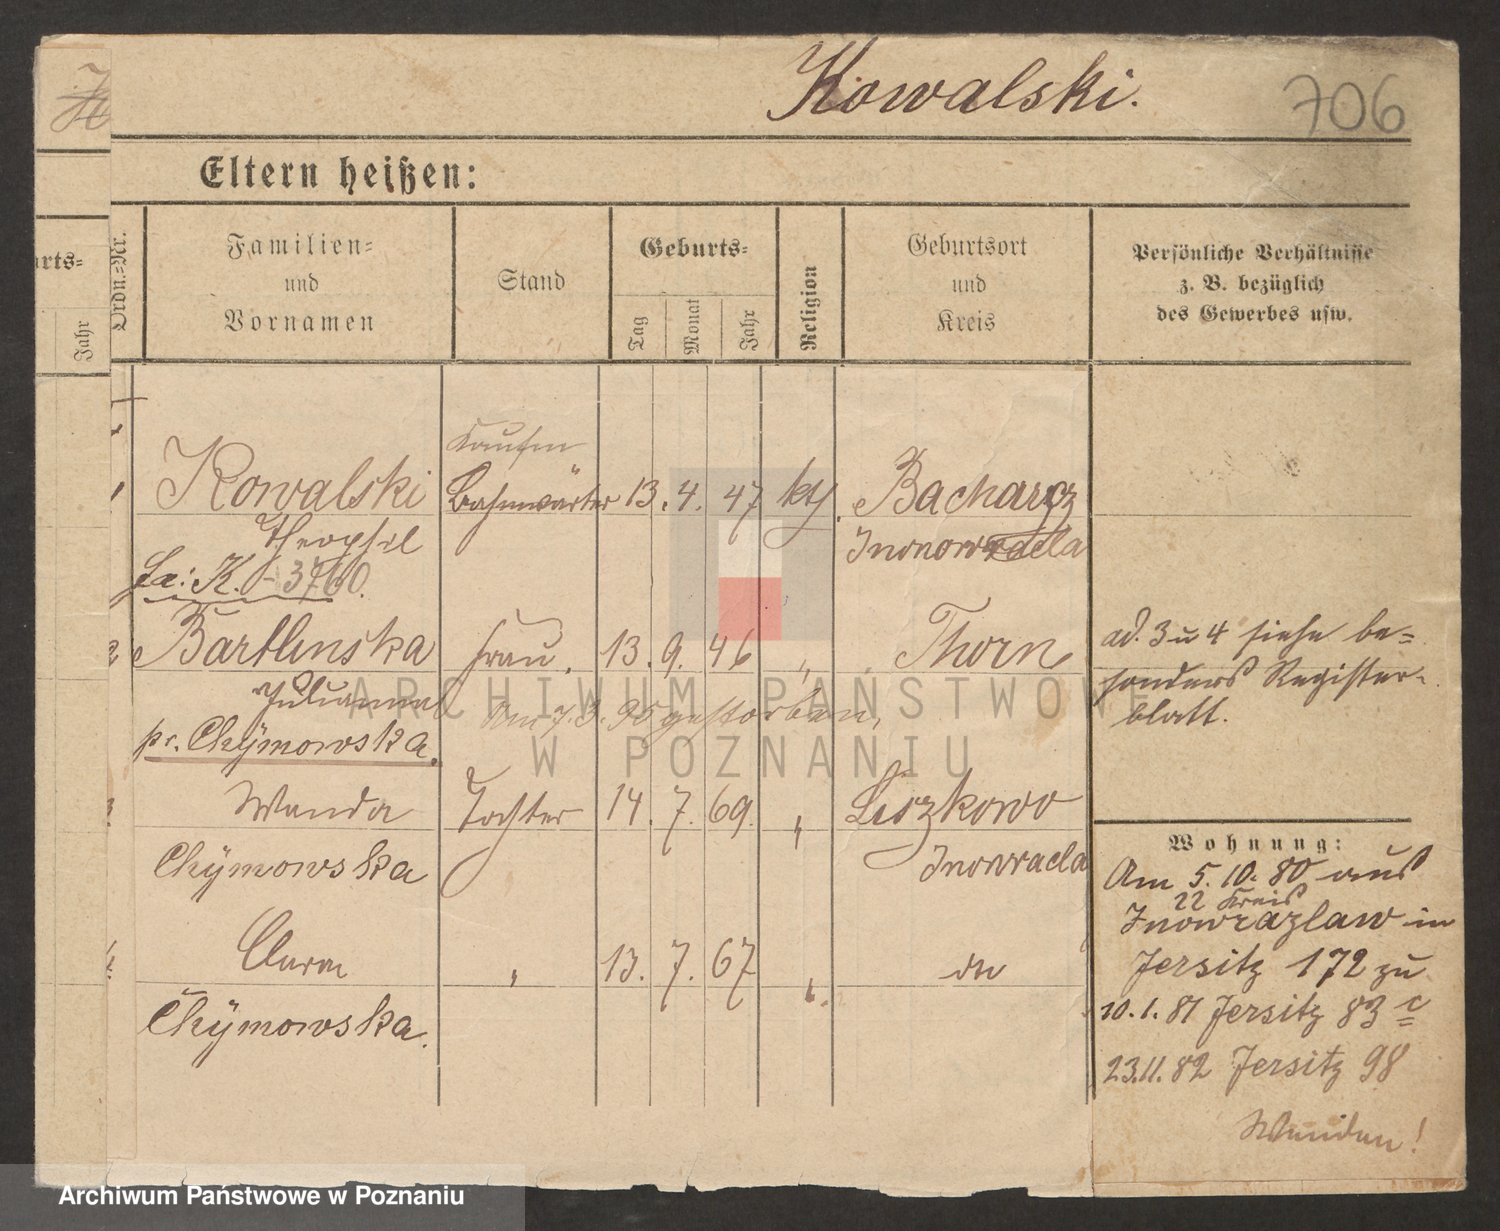 Kowalski.
706
Eltern heißen:
rts-
Jahr
Ordn.-Nr.
Familien-
und
Vornamen
Stand
Geburts-
Tag
Monat
Jahr
Religion
Geburtsort
und
Kreis
Persönliche Verhältnisse
z. B. bezüglich
des Gewerbes usw.
1 Kowalski Bahnwärter 13. 4. 47 kth. Bacharcz
Theophil Inonowracla
K. 3760.
2 Bartlinska Frau. 13. 9. 46 " Thorn
Julianna Am 7. 3. 95 gestorben.
pr. Chÿmowska.
ad. 3 u 4 siehe be=
sonders Register-
blatt.
3 Wanda Tochter 14. 7. 69. " Liszkowo
Chÿmowska Inowracla
4 Anna " 13. 7. 67 "
Chÿmowska.
Wohnung:
Am 5. 10. 80 aus
22 Kreis
Inowrazlaw in
Jersitz 172 zu
10. 1. 81 Jersitz 83 c
23. 11. 82 Jersitz 98
Wenden!
ARCHIWUM PAŃSTWOWE
W POZNANIU
Archiwum Państwowe w Poznaniu